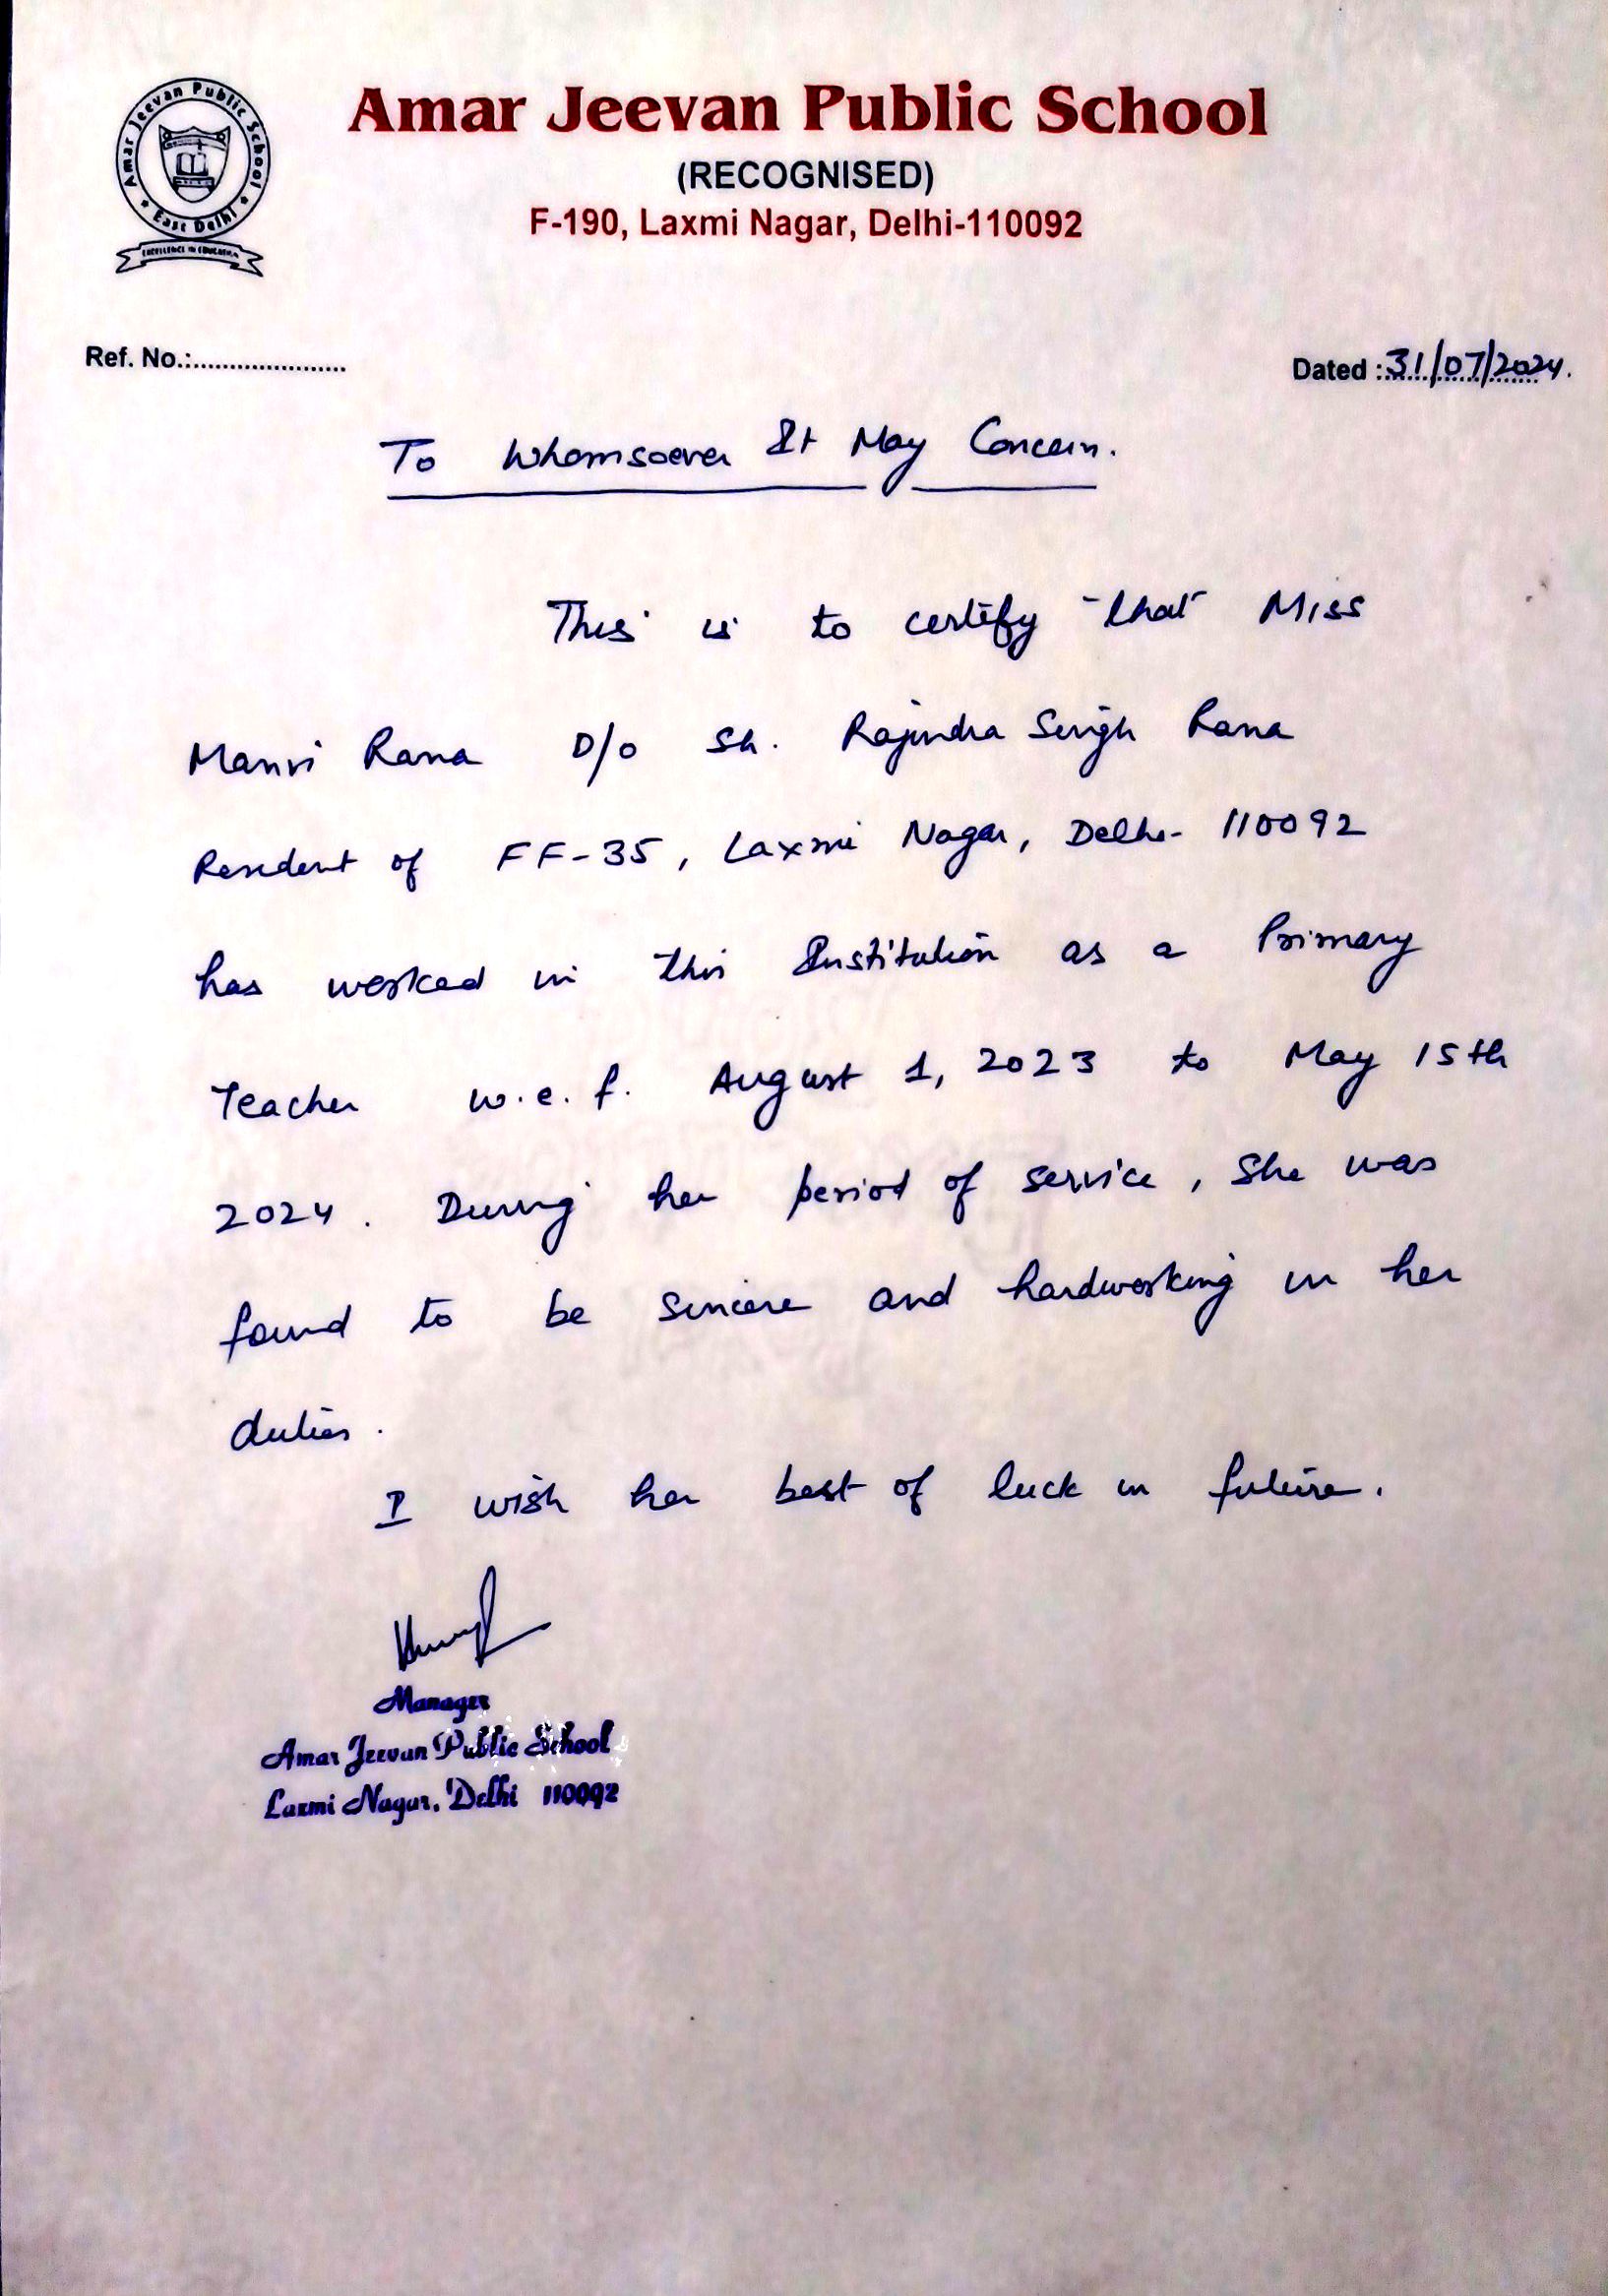 Amar Jeevan Public School
East Delhi
EXCELLENCE IN EDUCATION
Amar Jeevan Public School
(RECOGNISED)
F-190, Laxmi Nagar, Delhi-110092
Ref. No.:......................
Dated : 31/07/2024.
To Whomsoever It May Concern.
This is to certify that Miss
Manvi Rana D/o Sh. Rajindra Singh Rana
Resident of FF-35, Laxmi Nagar, Delhi- 110092
has worked in this Institution as a Primary
Teacher w.e.f. August 1, 2023 to May 15th
2024. During her period of service, She was
found to be sincere and hardworking in her
duties.
I wish her best of luck in future.
Manager
Amar Jeevan Public School
Laxmi Nagar, Delhi 110092